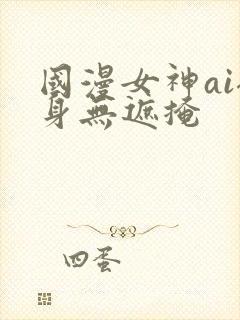 國漫女神ai
身無遮掩
四蛋